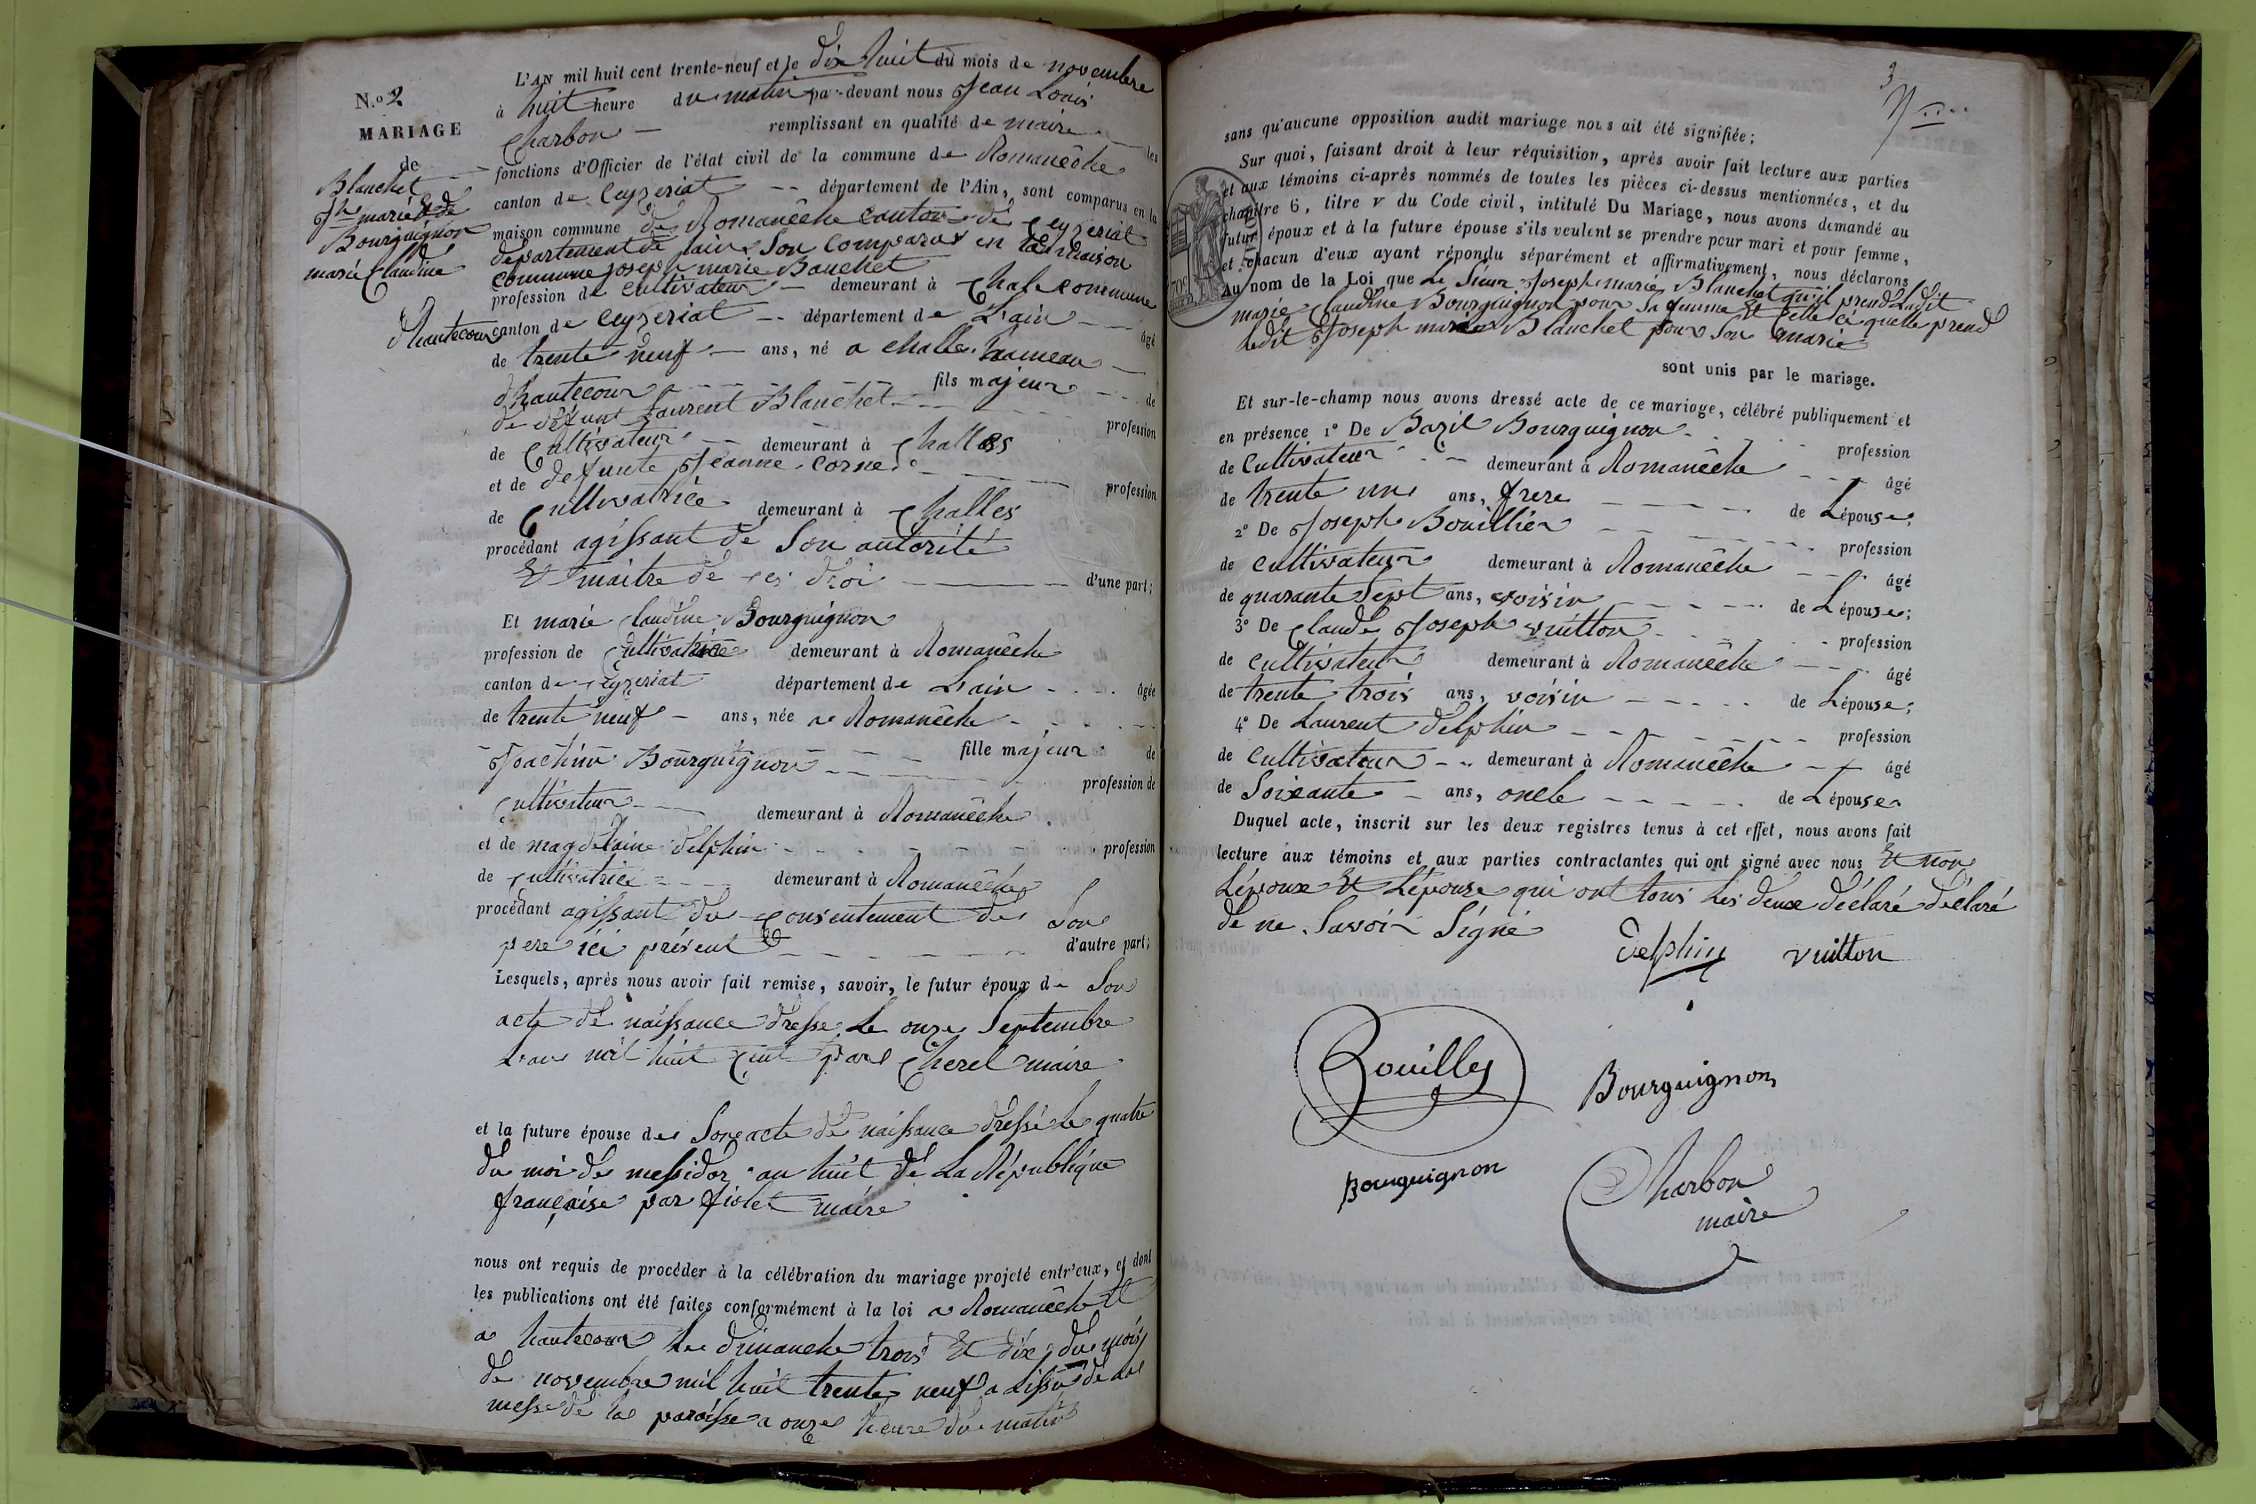 N.o 2
MARIAGE
de
Blanchet
Jh marie & de
Bourguignon
marie Claudine
d'hautecour
L'AN mil huit cent trente-neuf et le dix huit du mois de novembre
à huit heure du matin par-devant nous Jean Louis
Charbon remplissant en qualité de maire les
fonctions d'Officier de l'état civil de la commune de Romanêche
canton de Ceyzeriat département de l'Ain, sont comparus en la
maison commune de Romanêche canton de Ceyzeriat
departement de l'ain Son Comparus en la maison
commune joseph marie Banchet
profession de cultivateur demeurant à Chale commune
canton de Ceyzeriat département de L'ain âgé
de trente neuf ans, né a challes hameau
d'hautecour fils majeur de
de défunt Laurent Blanchet profession
de Cultivateur demeurant à Challes
et de defunte Jeanne Corne profession
de Cultivatrice demeurant à Challes
procédant agissant de Son autorité
Et maitre de ses droi d'une part;
Et marie Claudine Bourguignon
profession de Cultivatrice demeurant à Romanêche
canton de Ceyzeriat département de L'ain âgée
de trente neuf ans, née a Romanêche
fille majeur de
Joachim Bourguignon profession de
Cultivateur demeurant à Romanêche
et de magdelaine delphin profession
de Cultivatrice demeurant à Romanêche
procédant agissant du Consentement de Son
pere ici présent d'autre part;
Lesquels, après nous avoir fait remise, savoir, le futur époux de Son
acte de naissance dresse Le onze Septembre
L'an mil huit Cent par Cherel maire
et la future épouse de Son acte de naissance dressé le quatre
du moi de messidor an huit de La République
française par fiolet maire
nous ont requis de procéder à la célébration du mariage projeté entr'eux, et dont
les publications ont été faites conformément à la loi a Romanêche Et
a hautecour Le dimanche trois Et dix du mois
de novembre mil huit trente neuf a L'issu de La
messe de la paroisse a onze heure du matin
3
sans qu'aucune opposition audit mariage nous ait été signifiée;
Sur quoi, faisant droit à leur réquisition, après avoir fait lecture aux parties
et aux témoins ci-après nommés de toutes les pièces ci-dessus mentionnées, et du
chapitre 6, titre v du Code civil, intitulé Du Mariage, nous avons demandé au
futur époux et à la future épouse s'ils veulent se prendre pour mari et pour femme,
et chacun d'eux ayant répondu séparément et affirmativement, nous déclarons
Au nom de la Loi que Le Sieur Joseph marie Blanchet qu'il prend Ladit
marie Claudine Bourguignon pour Sa femme Et Celle ci quelle prend
Ledit Joseph marie Blanchet pour Son marie
sont unis par le mariage.
Et sur-le-champ nous avons dressé acte de ce mariage, célébré publiquement et
en présence 1o De Bazil Bourguignon profession
de Cultivateur demeurant à Romanêche âgé
de trente un ans, frere de L'épouse;
2o De Joseph Bouillier profession
de cultivateur demeurant à Romanêche âgé
de quarante Sept ans, voisin de L'épouse;
3o De Claude Joseph vuitton profession
de cultivateur demeurant à Romanêche âgé
de trente trois ans, voisin de L'épouse;
4o De Laurent delphin profession
de cultivateur demeurant à Romanêche âgé
de Soixante ans, oncle de L'épouse
Duquel acte, inscrit sur les deux registres tenus à cet effet, nous avons fait
lecture aux témoins et aux parties contractantes qui ont signé avec nous Et non
L'époux Et L'épouse qui ont tous Les deux déclaré déclaré
de ne Savoir Signé
Delphin vuitton
Bouilly
Bourguignon
Bourguignon
Charbon
maire